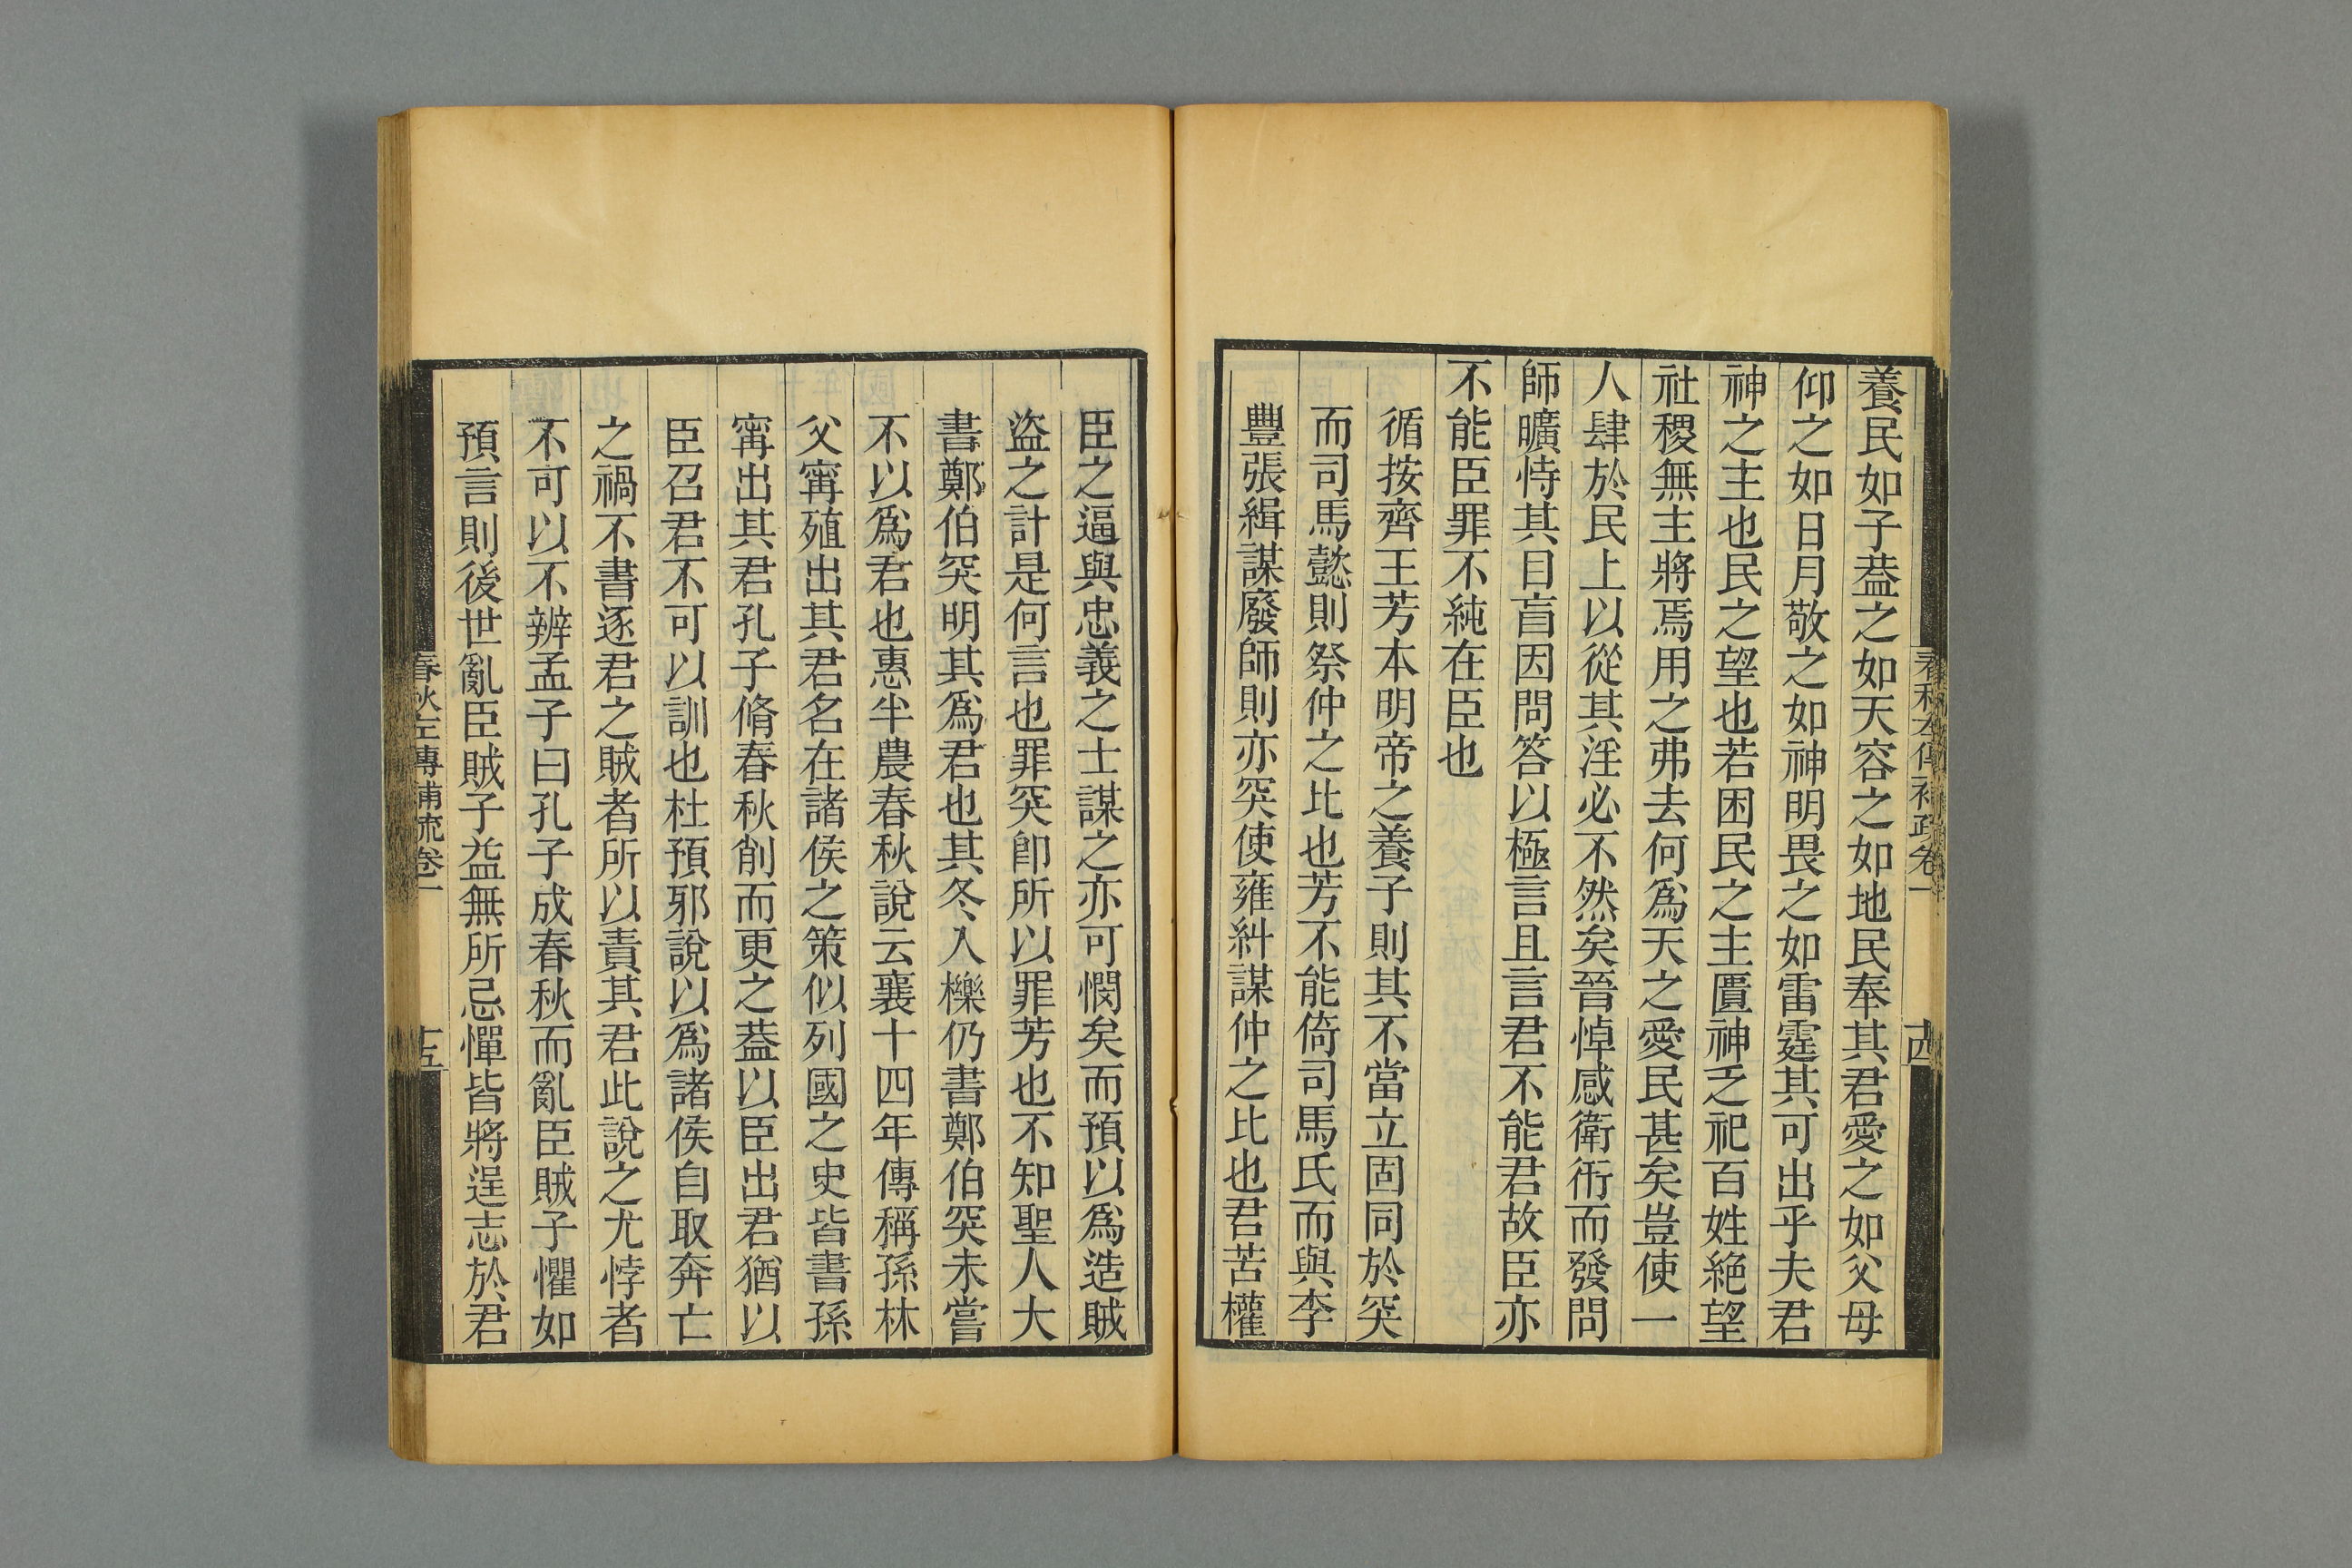 春秋左傳補疏卷一
十四
養民如子葢之如天容之如地民奉其君愛之如父母
仰之如日月敬之如神明畏之如雷霆其可出乎夫君
神之主也民之望也若困民之主匱神乏祀百姓絶望
社稷無主將焉用之弗去何爲天之愛民甚矣豈使一
人肆於民上以從其淫必不然矣晉悼感衛衎而發問
師曠恃其目盲因問答以極言且言君不能君故臣亦
不能臣罪不純在臣也
循按齊王芳本明帝之養子則其不當立固同於突
而司馬懿則祭仲之比也芳不能倚司馬氏而與李
豐張緝謀廢師則亦突使雍糾謀仲之比也君苦權
臣之逼與忠義之士謀之亦可憫矣而預以爲造賊
盜之計是何言也罪突卽所以罪芳也不知聖人大
書鄭伯突明其爲君也其冬入櫟仍書鄭伯突未嘗
不以爲君也惠半農春秋說云襄十四年傳稱孫林
父甯殖出其君名在諸侯之策似列國之史皆書孫
甯出其君孔子脩春秋削而更之葢以臣出君猶以
臣召君不可以訓也杜預邪說以爲諸侯自取奔亡
之禍不書逐君之賊者所以責其君此說之尤悖者
不可以不辨孟子曰孔子成春秋而亂臣賊子懼如
預言則後世亂臣賊子益無所忌憚皆將逞志於君
春秋左傳補疏卷一
十五